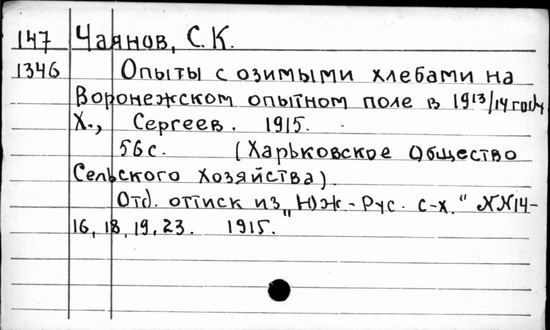 147 Чаянов, С.К.
1346 Опыты с озимыми хлебами на
Воронежском опытном поле в 1913/14 году
Х., Сергеев. 1915.
56с. (Харьковское Общество
Сельского Хозяйства).
Отд. оттиск из „Юж-Рус. с-х." NN14-
16, 18, 19, 23. 1915.